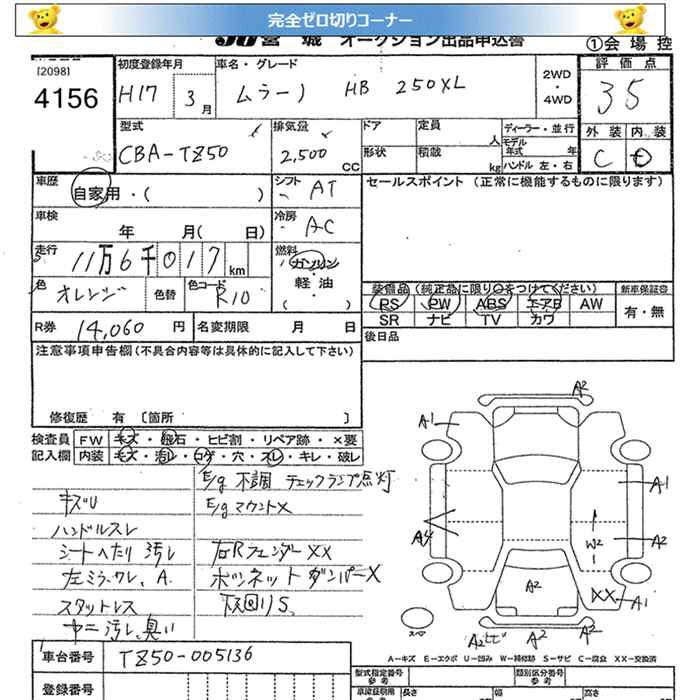 完全ゼロ切りコーナー
JU 宮城 オークション出品申込書 ①会場控
[2098]
4156
初度登録年月 H17 3月
車名・グレード ムラーノ HB 250XL
2WD・4WD
評価点 35
外装 内装
C D
型式 CBA-TZ50
排気量 2,500 CC
ドア 形状
定員 人
積載 kg
ディーラー・並行
モデル年式 年
ハンドル 左・右
車歴 自家用・( )
シフト AT
セールスポイント(正常に機能するものに限ります)
車検 年 月( 日)
冷房 AC
走行 11万6千017km
燃料 ガソリン・軽油・( )
色 オレンジ 色替 色コード R10
装備品(純正品に限り○をつけてください) 新車保証書
PS PW ABS エアB AW 有・無
SR ナビ TV カワ
R券 14,060円 名変期限 月 日
後日品
注意事項申告欄(不具合内容等は具体的に記入して下さい)
修復歴 有 〔箇所 〕
検査員記入欄
FW キズ・飛石・ヒビ割・リペア跡・×要
内装 キズ・汚レ・コゲ・穴・スレ・キレ・破レ
E/g 不調 チェックランプ点灯
キズU E/gマウントX
ハンドルスレ
シートヘタリ 汚レ 右Rフェンダー XX
左ミラーワレ、A. ボンネットダンパーX
スタットレス 下回りS
内ニ汚レ、臭い
A2
A1
A1
A4
W2
A2
A2
XX A1
スペア
A2ヒビ A2 A2
A−キズ E−エクボ U−凹み W−補修跡 S−サビ C−腐食 XX−交換済
車台番号 TZ50-005136
型式指定番号 参考
類別区分番号 参考
登録番号
車検証記載 参考 長さ 幅 高さ